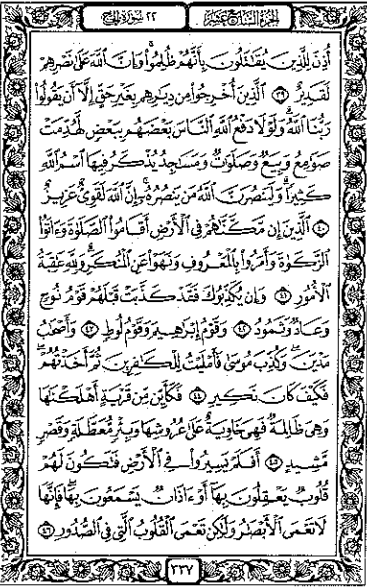 الجزء السابع عشر ٢٢ سورة الحج
أُذِنَ لِلَّذِينَ يُقَٰتَلُونَ بِأَنَّهُمْ ظُلِمُوا۟ وَإِنَّ ٱللَّهَ عَلَىٰ نَصْرِهِمْ
لَقَدِيرٌ ٣٩ ٱلَّذِينَ أُخْرِجُوا۟ مِن دِيَٰرِهِم بِغَيْرِ حَقٍّ إِلَّآ أَن يَقُولُوا۟
رَبُّنَا ٱللَّهُ وَلَوْلَا دَفْعُ ٱللَّهِ ٱلنَّاسَ بَعْضَهُم بِبَعْضٍ لَّهُدِّمَتْ
صَوَٰمِعُ وَبِيَعٌ وَصَلَوَٰتٌ وَمَسَٰجِدُ يُذْكَرُ فِيهَا ٱسْمُ ٱللَّهِ
كَثِيرًا وَلَيَنصُرَنَّ ٱللَّهُ مَن يَنصُرُهُۥٓ إِنَّ ٱللَّهَ لَقَوِىٌّ عَزِيزٌ
٤٠ ٱلَّذِينَ إِن مَّكَّنَّٰهُمْ فِى ٱلْأَرْضِ أَقَامُوا۟ ٱلصَّلَوٰةَ وَءَاتَوُا۟
ٱلزَّكَوٰةَ وَأَمَرُوا۟ بِٱلْمَعْرُوفِ وَنَهَوْا۟ عَنِ ٱلْمُنكَرِ وَلِلَّهِ عَٰقِبَةُ
ٱلْأُمُورِ ٤١ وَإِن يُكَذِّبُوكَ فَقَدْ كَذَّبَتْ قَبْلَهُمْ قَوْمُ نُوحٍ
وَعَادٌ وَثَمُودُ ٤٢ وَقَوْمُ إِبْرَٰهِيمَ وَقَوْمُ لُوطٍ ٤٣ وَأَصْحَٰبُ
مَدْيَنَ وَكُذِّبَ مُوسَىٰ فَأَمْلَيْتُ لِلْكَٰفِرِينَ ثُمَّ أَخَذْتُهُمْ
فَكَيْفَ كَانَ نَكِيرِ ٤٤ فَكَأَيِّن مِّن قَرْيَةٍ أَهْلَكْنَٰهَا
وَهِىَ ظَالِمَةٌ فَهِىَ خَاوِيَةٌ عَلَىٰ عُرُوشِهَا وَبِئْرٍ مُّعَطَّلَةٍ وَقَصْرٍ
مَّشِيدٍ ٤٥ أَفَلَمْ يَسِيرُوا۟ فِى ٱلْأَرْضِ فَتَكُونَ لَهُمْ
قُلُوبٌ يَعْقِلُونَ بِهَآ أَوْ ءَاذَانٌ يَسْمَعُونَ بِهَا فَإِنَّهَا
لَا تَعْمَى ٱلْأَبْصَٰرُ وَلَٰكِن تَعْمَى ٱلْقُلُوبُ ٱلَّتِى فِى ٱلصُّدُورِ ٤٦
٣٣٧